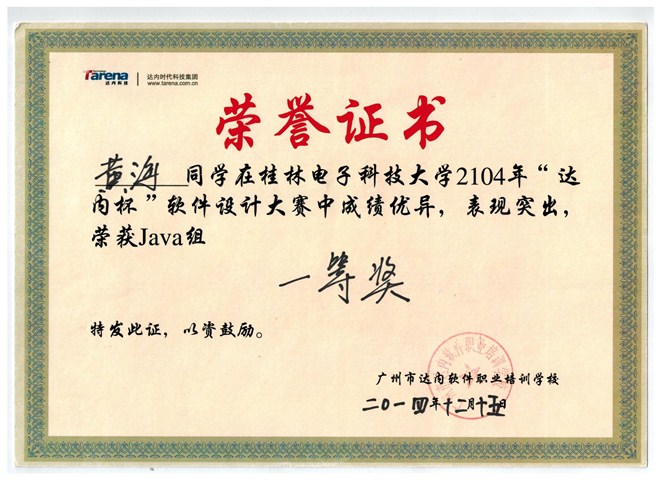 Tarena
达内科技
达内时代科技集团
www.tarena.com.cn
荣誉证书
黄海 同学在桂林电子科技大学2104年“达
内杯”软件设计大赛中成绩优异，表现突出，
荣获Java组
一等奖
特发此证，以资鼓励。
广州市达内软件职业培训学校
二〇一四年十二月十五日